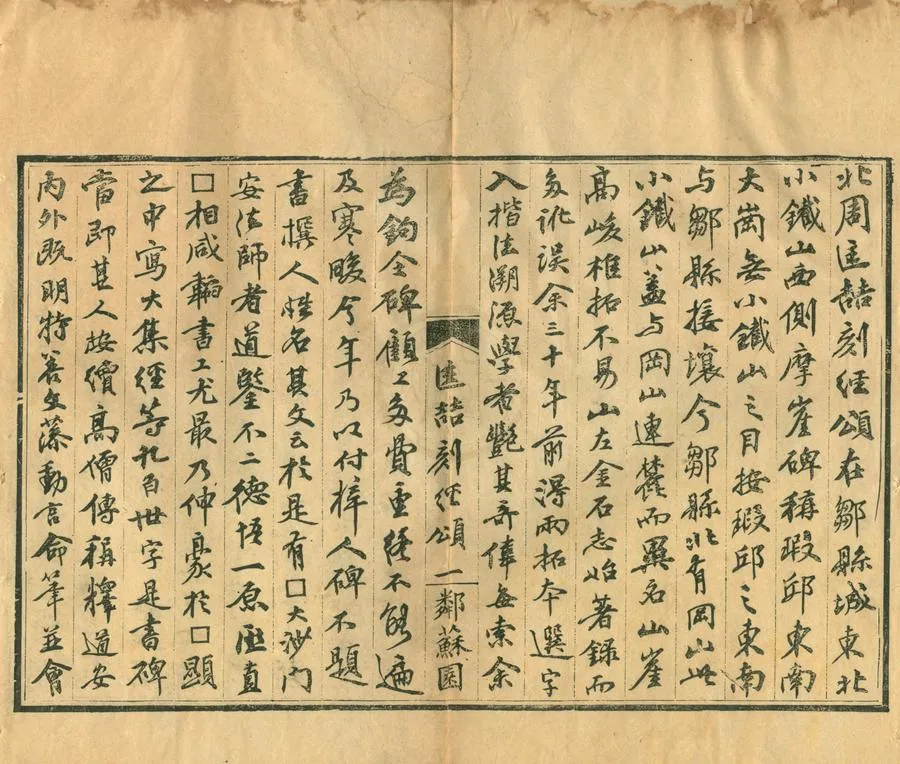 北周匡喆刻經頌在鄒縣城東北
小鐵山西側摩崖碑稱瑕邱東南
大崗無小鐵山之目按瑕邱之東南
与鄒縣接壤今鄒縣北有岡山此
小鐵山蓋与岡山連麓而異名山崖
高峻椎拓不易山左金石志始著錄而
多訛誤余三十年前得兩拓本選字
入楷法溯源學者艷其奇偉每索余
匡喆刻經頌 一 鄰蘇園
為鉤全碑顧工多費重終不能遍
及寒暇今年乃以付梓人碑不題
書撰人姓名其文云於是有□大沙門
安法師者道鑒不二德悟一原匪直
□相咸韜書工尤最乃伸豪於□顯
之中寫大集經等九百卅字是書碑
當即其人按續高僧傳稱釋道安
內外既明特善文藻動言命筆並會